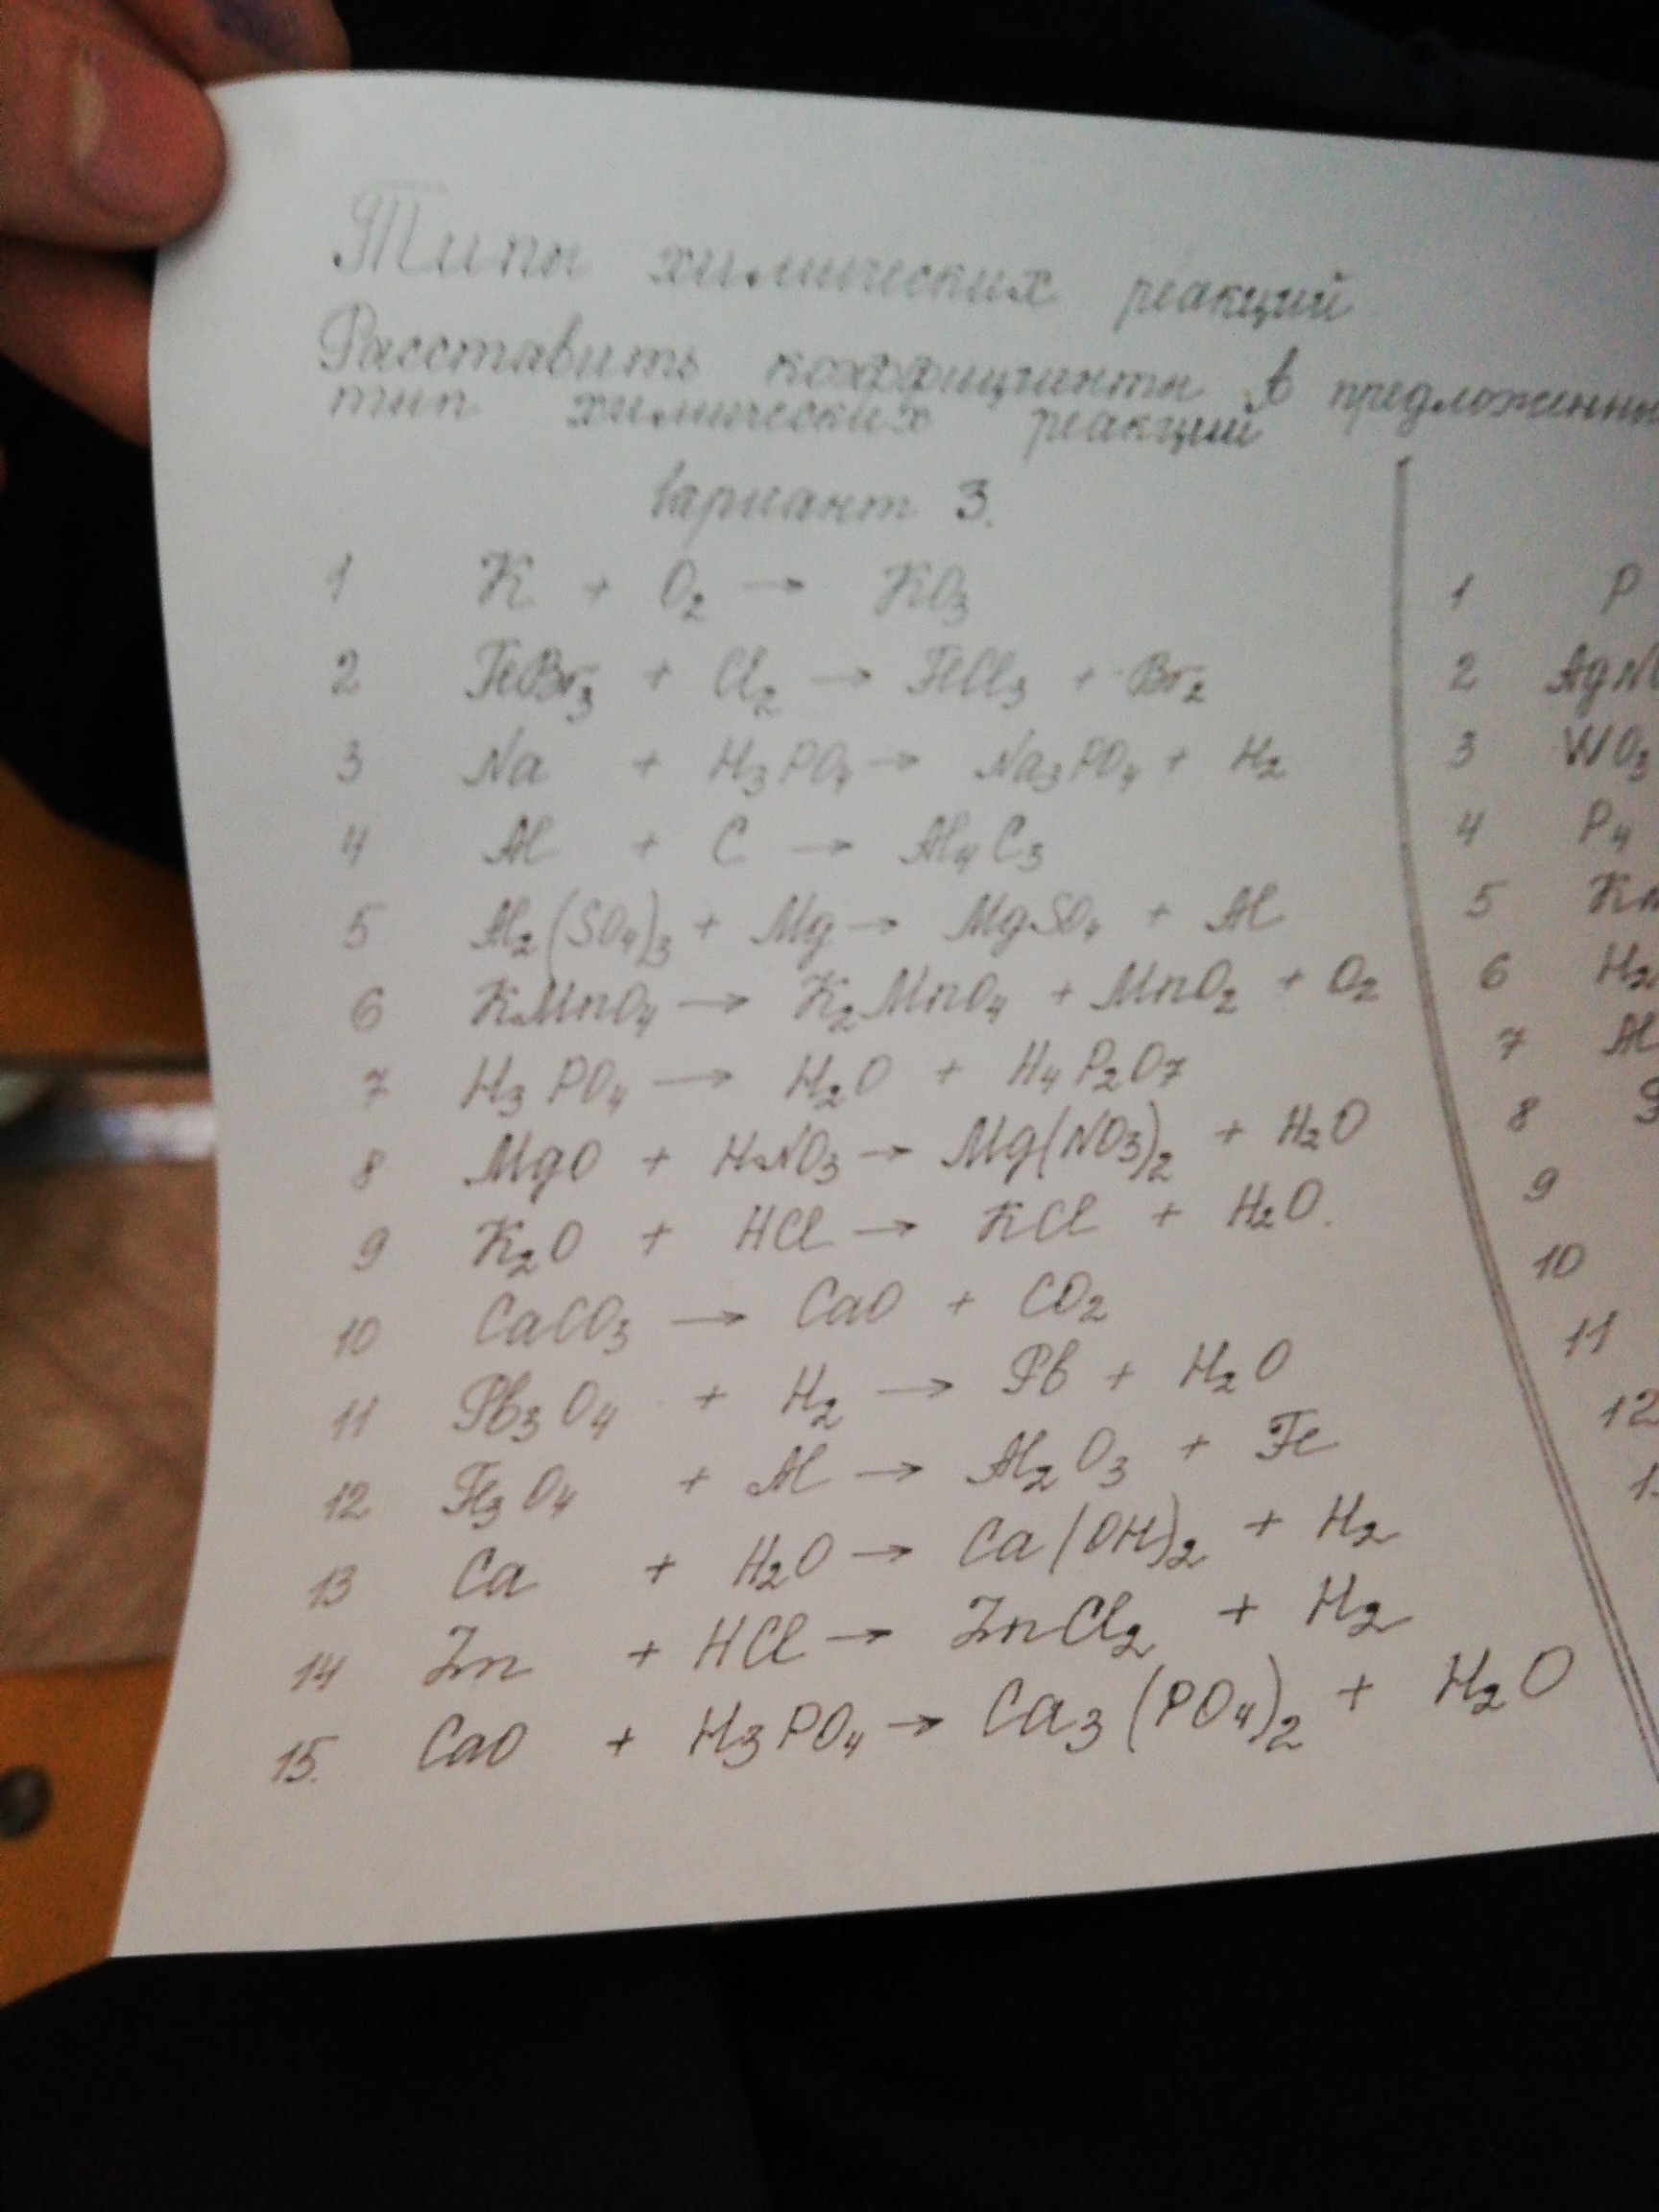 Типы химических реакций
Расставить коэффициенты в предложенны
тип химических реакций
Вариант 3.
1 K + O₂ → KO₃
2 FeBr₃ + Cl₂ → FeCl₃ + Br₂
3 Na + H₃PO₄ → Na₃PO₄ + H₂
4 Al + C → Al₄C₃
5 Al₂(SO₄)₃ + Mg → MgSO₄ + Al
6 KMnO₄ → K₂MnO₄ + MnO₂ + O₂
7 H₃PO₄ → H₂O + H₄P₂O₇
8 MgO + HNO₃ → Mg(NO₃)₂ + H₂O
9 K₂O + HCl → KCl + H₂O.
10 CaCO₃ → CaO + CO₂
11 Pb₃O₄ + H₂ → Pb + H₂O
12 Fe₃O₄ + Al → Al₂O₃ + Fe
13 Ca + H₂O → Ca(OH)₂ + H₂
14 Zn + HCl → ZnCl₂ + H₂
15. CaO + H₃PO₄ → Ca₃(PO₄)₂ + H₂O
1 P
2 AgN
3 WO₃
4 P₄
5 K
6 H₂
7 Al
8
9
10
11
12